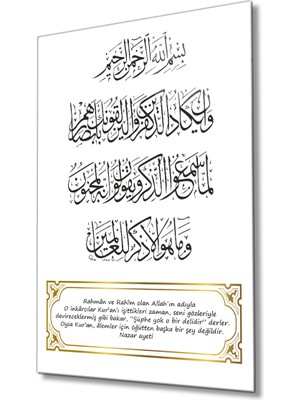 بسم الله الرحمن الرحيم
وإن يكاد الذين كفروا ليزلقونك بأبصارهم
لما سمعوا الذكر ويقولون إنه لمجنون
وما هو إلا ذكر للعالمين
Rahmân ve Rahîm olan Allah'ın adıyla
O inkârcılar Kur'an'ı işittikleri zaman, seni gözleriyle
devireceklermiş gibi bakar. "Şüphe yok o bir delidir" derler.
Oysa Kur'an, âlemler için öğütten başka bir şey değildir.
Nazar ayeti